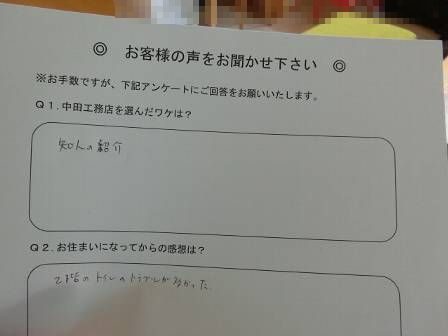 ◎ お客様の声をお聞かせ下さい ◎
※お手数ですが、下記アンケートにご回答をお願いいたします。
Q1.中田工務店を選んだワケは?
知人の紹介
Q2.お住まいになってからの感想は?
2階のトイレのトラブルが多かった。